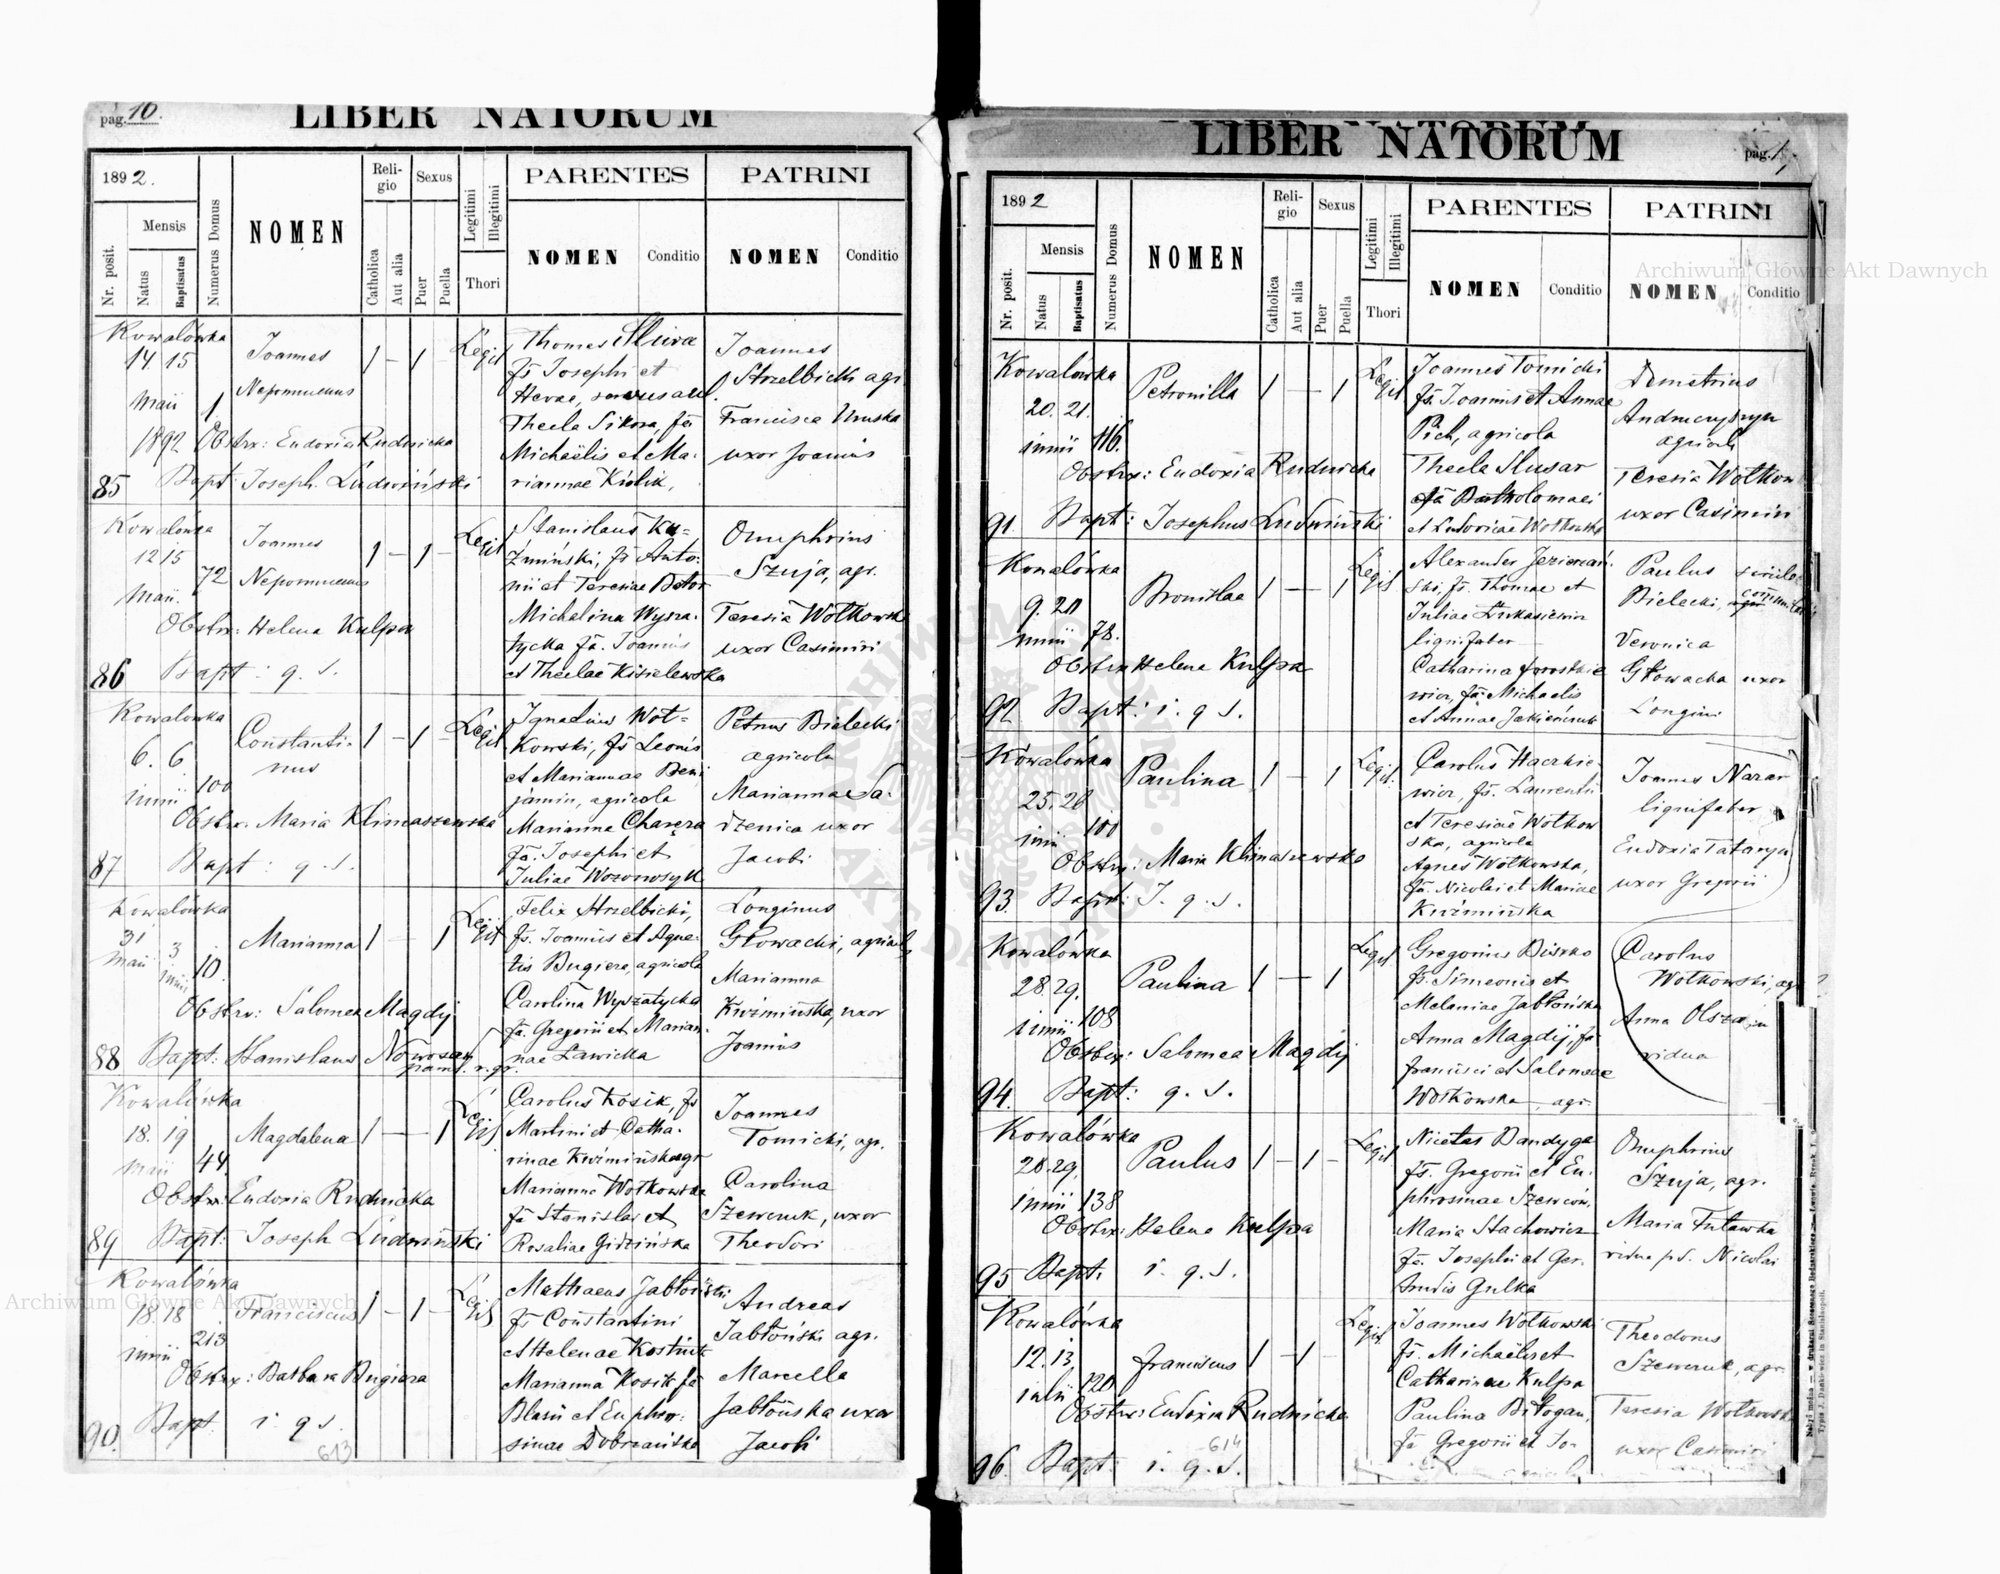 pag. 10.
LIBER NATORUM
1892.
Nr. posit.
Mensis
Natus
Baptisatus
Numerus Domus
NOMEN
Reli-
gio
Catholica
Aut alia
Sexus
Puer
Puella
Legitimi
Illegitimi
Thori
PARENTES
NOMEN
Conditio
PATRINI
NOMEN
Conditio
Kowalówka
14 15
Maii
1892
1
Joannes
Nepomucenus
1 — 1
Legit
Thomas Sliwa
fs Josephi et
Thecla Sikora, fa
Michaëlis et Ma-
riannae Królik,
Joannes
Strzelbicki agr
Francisca Uruska
uxor Joannis
Obstrx: Eudoxia Rudnicka
85 Bapt: Joseph Ludwiński
Kowalówka
12 15
Maii.
72
Joannes
Nepomucenus
1 — 1 —
Legit
Stanislaus Ku-
źmiński, fs Anto-
nii et Teresiae Botor
Michalina Wysza-
tycka fa. Joannis
et Theclae Kisielewska
Onuphrius
Szuja, agr.
Teresia Wołkowska
uxor Casimiri
Obstrx: Helena Kulpa
86 Bapt: q. s.
Kowalowka
6. 6
junii
100
Constanti-
nus
1 — 1 —
Legit
Ignatius Woł-
kowski, fs Leonis
et Mariannae Beni
jamin, agricola
Marianna Charęza
fa. Josephi et
Juliae Wozowosyk
Petrus Bielecki
agricola
Marianna Sa-
dzenica uxor
Jacobi
Obstrx: Maria Klimaszewska
87 Bapt: q. s.
Kowalówka
31 3
Maii junii
10.
Marianna
1 — 1
Legit
Felix Strzelbicki,
fs. Joannis et Agne-
tis Bugiera, agricola
Carolina Wyszatycka
fa. Gregorii et Marian-
nae Ławicka
Longinus
Głowacki, agricola
Marianna
Kuźmińska, uxor
Joannis
Obstrx: Salomea Magdij
88 Bapt: Stanislaus Nowosad
Kowalówka
18. 19
Maii
44
Magdalena
1 — 1
Legit
Carolus Kosik, fs
Martini et Catha-
rinae Kuźmińska agr
Marianna Wołkowska
fa Stanislai et
Rosaliae Gidzińska
Joannes
Tomicki, agr.
Carolina
Szewczuk, uxor
Theodori
Obstrx: Eudoxia Rudnicka
89 Bapt: Joseph Ludwiński
Kowalówka
18. 18
junii
213
Franciscus
1 — 1 —
Legit
Mathaeus Jabłoński
fs Constantini
et Helenae Kostiuk
Marianna Kosik fa
Blasii et Euphro-
sinae Dobrzańska
Andreas
Jabłoński agr.
Marcella
Jabłońska uxor
Jacobi
Obstrx: Barbara Bugiera
90. Bapt. i. q. s.
613
LIBER NATORUM
pag.
1892
Nr. posit.
Mensis
Natus
Baptisatus
Numerus Domus
NOMEN
Reli-
gio
Catholica
Aut alia
Sexus
Puer
Puella
Legitimi
Illegitimi
Thori
PARENTES
NOMEN
Conditio
PATRINI
NOMEN
Conditio
Kowalówka
20. 21.
junii
116.
Petronilla
1 — 1
Legit
Joannes Tomicki
fs. Joannis et Annae
Pich, agricola
Thecla Slusar
fa Bartholomaei
et Ludovicae Wołkowska
Demetrius
agricola
Teresia Wołkow
uxor Casimiri
Obstrx: Eudoxia Rudnicka
91. Bapt: Josephus Ludwiński
Kowalówka
9. 20
junii
78.
Bronislaa
1 — 1
Legit
Alexander Jeziorań-
ski, fs. Thomae et
Juliae Łukasiewicz
lignifaber
Catharina Jarostkie
wicz, fa Michaelis
et Annae
Paulus
Bielecki,
Veronica
Głowacka uxor
Longini
Obstrx Helena Kulpa
92 Bapt: i. q s.
Kowalówka
25. 26
junii
100
Paulina
1 — 1
Legit.
Carolus Haczkie-
wicz, fs. Laurentii
et Teresiae Wołkow
ska, agricola
Agnes Wołkowska,
fa. Nicolai et Mariae
Kuźmińska
Joannes Nazar
lignifaber
Eudoxia Tataryn
uxor Gregorii
Obstrx: Maria Klimaszewska
93. Bapt: J. q. s.
Kowalówka
28. 29.
junii
108
Paulina
1 — 1
Legit
Gregorius Bisko
fs. Simeonis et
Melaniae Jabłońska
Anna Magdij, fa
Francisci et Salomeae
Wołkowska, agr.
Carolus
Wołkowski, agr
Anna Olsza
vidua
Obstrx: Salomea Magdij
94. Bapt: q. s.
Kowalówka
28. 29,
junii
138
Paulus
1 — 1 —
Legit
Nicetas Bandyga
fs. Gregorii et Eu-
phrosinae Szewców,
Maria Stachowicz
fa. Josephi et Ger-
trudis Gulka
Onuphrius
Szuja, agr.
Maria Fuławka
vidua p d. Nicolai
Obstrx: Helena Kulpa
95 Bapt. i. q. s.
Kowalówka
12. 13,
julii
120
Franciscus
1 — 1 —
Legit.
Joannes Wołkowski
fs. Michaëlis et
Catharinae Kulpa
Paulina Biłogan,
fa Gregorii et Jo-
Theodorus
Szewczuk, agr.
Teresia Wołkowska
uxor Casimiri
Obstrx: Eudoxia Rudnicka
614
96. Bapt: i. q. s.
Archiwum Główne Akt Dawnych
Archiwum Główne Akt Dawnych
ARCHIWUM GŁÓWNE AKT DAWNYCH